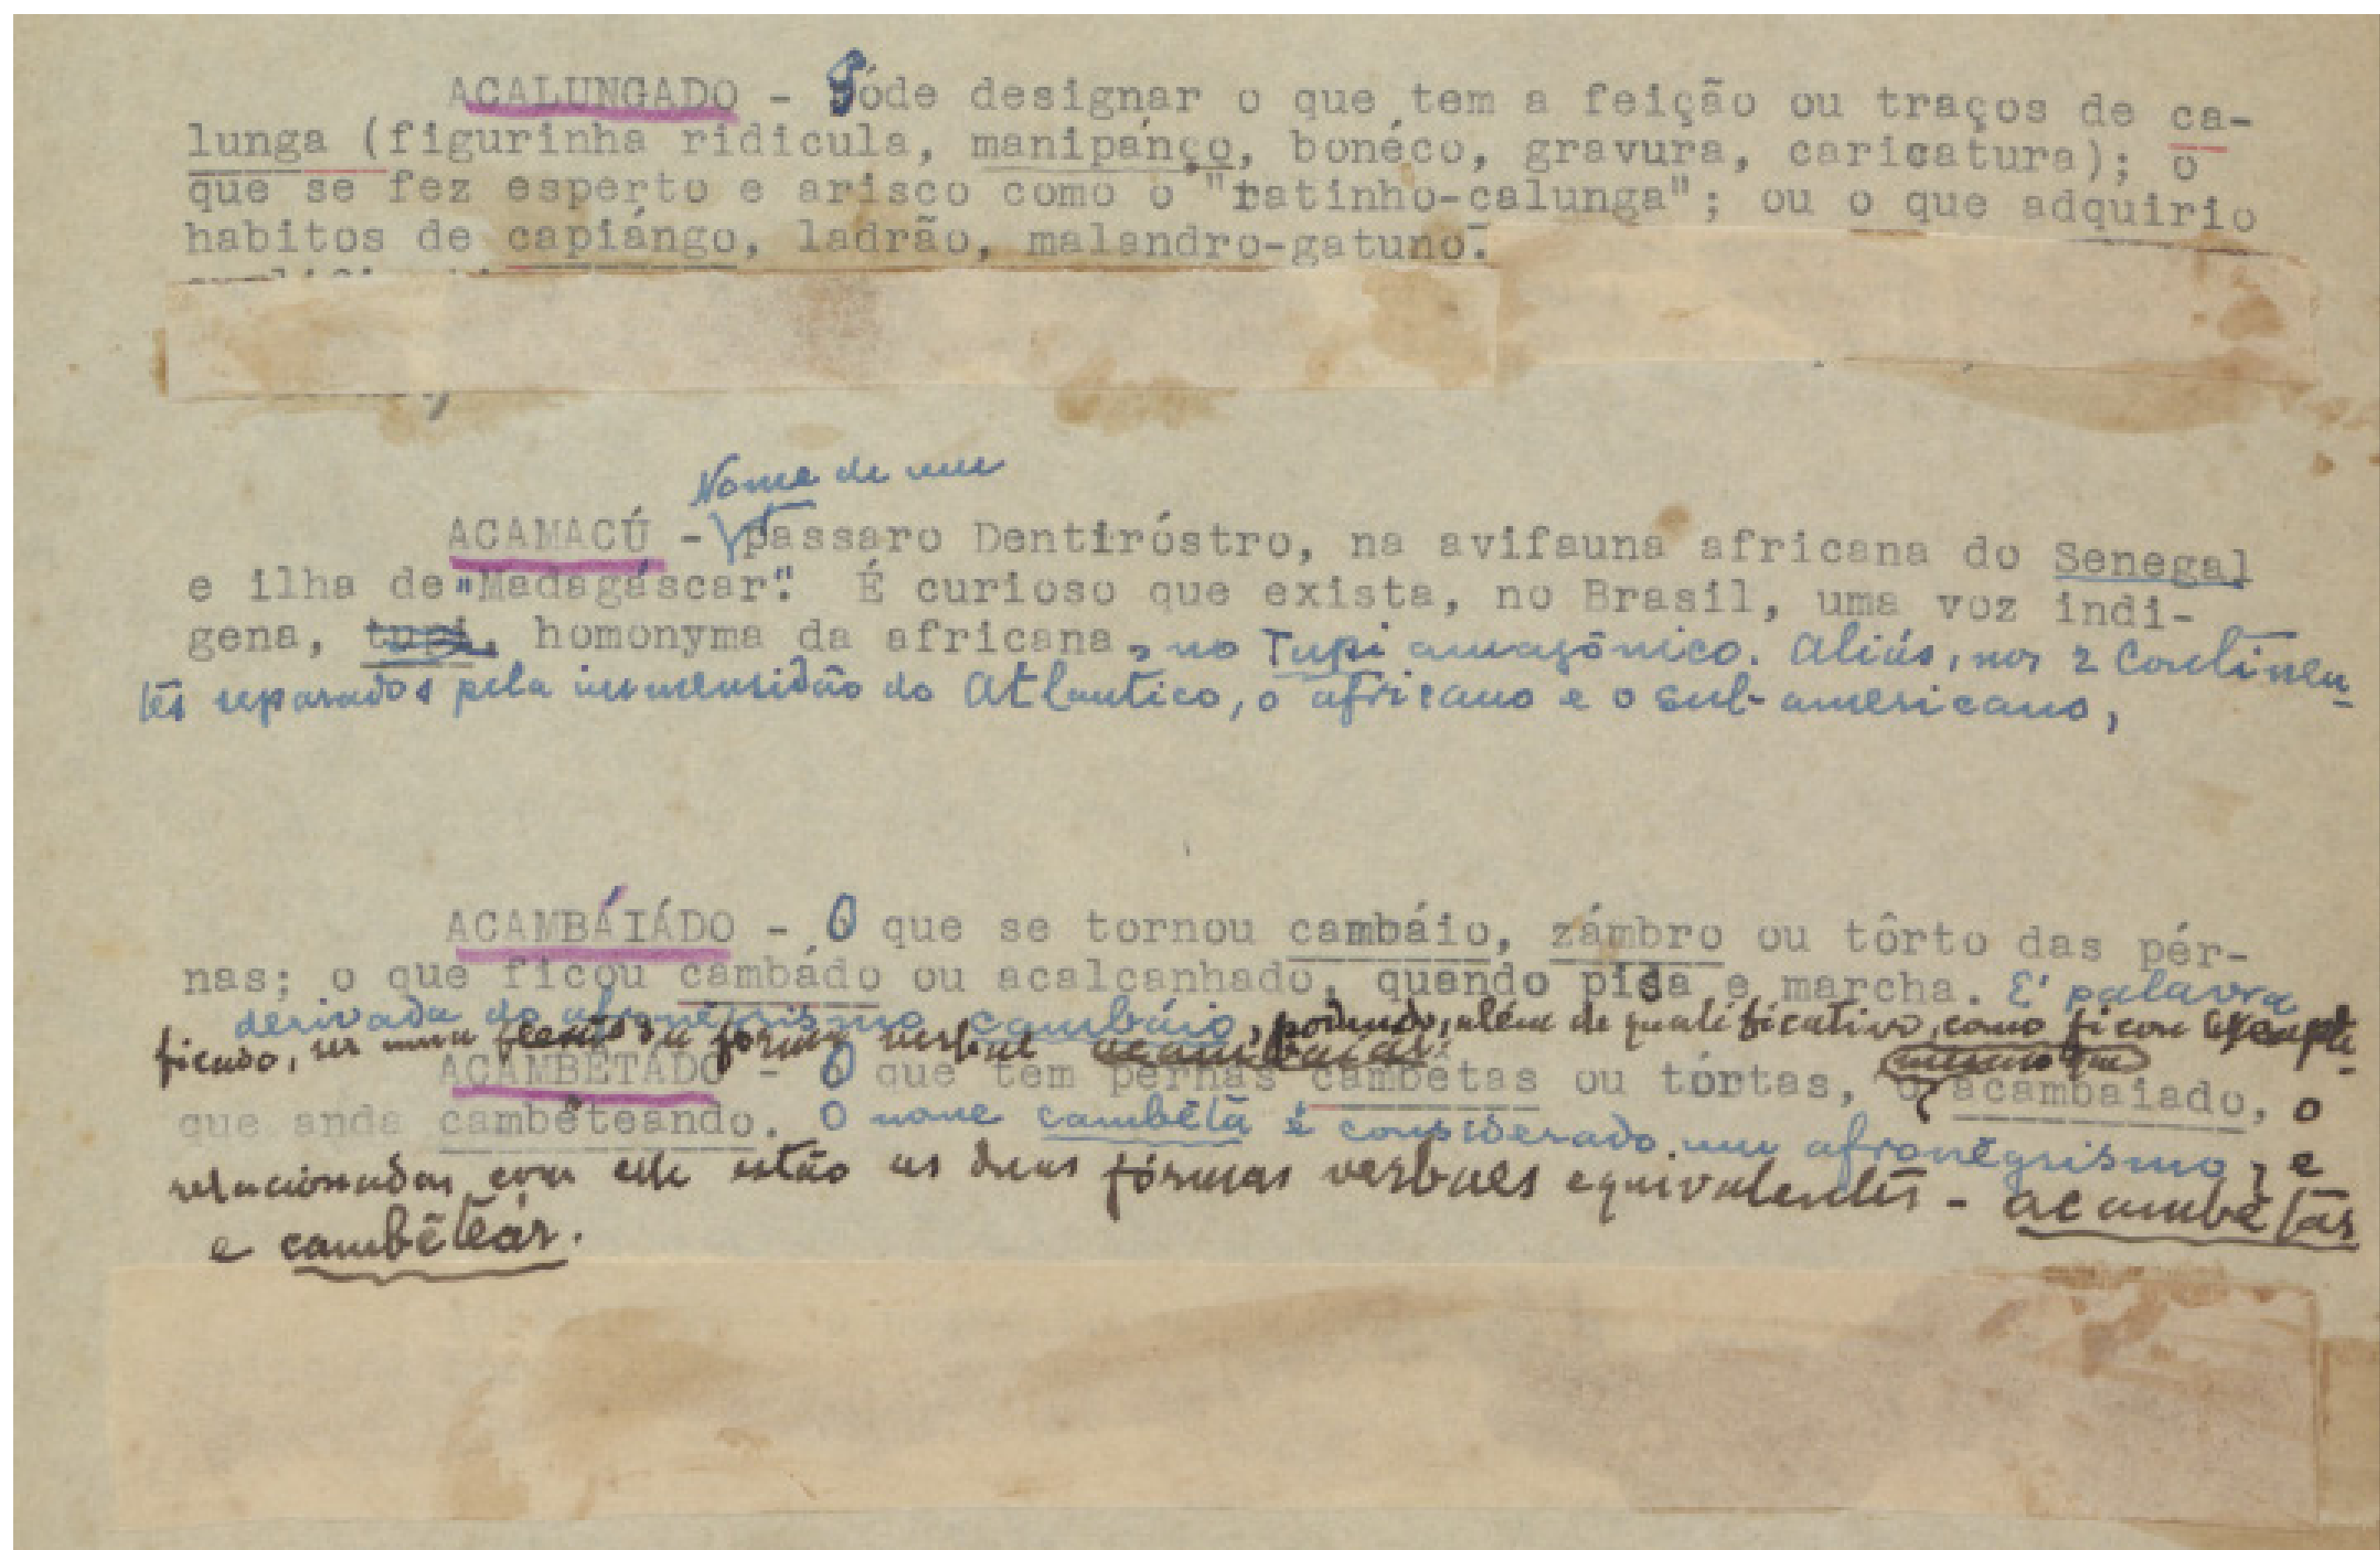 ACALUNGADO - Póde designar o que tem a feição ou traços de ca-
lunga (figurinha ridicula, manipánço, bonéco, gravura, caricatura); o
que se fez esperto e arisco como o "ratinho-calunga"; ou o que adquirio
habitos de capiángo, ladrão, malandro-gatuno.
Nome de um
ACAMACÚ - passaro Dentiróstro, na avifauna africana do Senegal
e ilha de "Madagáscar". É curioso que exista, no Brasil, uma voz indi-
gena, tupi, homonyma da africana, no Tupi amazônico. Aliás, nos 2 Continen-
tes separados pela immensidão do Atlantico, o africano e o sul-americano,
ACAMBÁIÁDO - O que se tornou cambáio, zámbro ou tôrto das pér-
nas; o que ficou cambádo ou acalcanhado, quando pisa e marcha. E' palavra
derivada do afronegrismo cambáio, podendo, além de qualificativo, como ficou exempli-
ficado, ser uma flexão da fórma verbal acambaiar.
mesmo que
ACAMBETÁDO - O que tem pernas cambetas ou tórtas, o acambaiado, o
que anda cambeteando. O nome cambêta é considerado um afronegrismo, e
relacionadas com elle estão as duas fórmas verbaes equivalentes - acambêtar
e cambêteár.